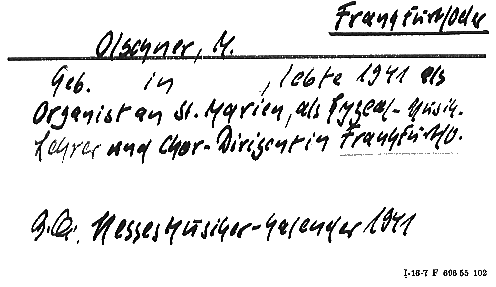 Frankfurt/Oder
Olschner, M.
Geb. in , lebte 1941 als
Organist an St. Marien, als Lyzeal-Musik-
Lehrer und Chor-Dirigent in Frankfurt/O.
Hesses Musiker-Kalender 1941
I-16-7 F 606 55 102